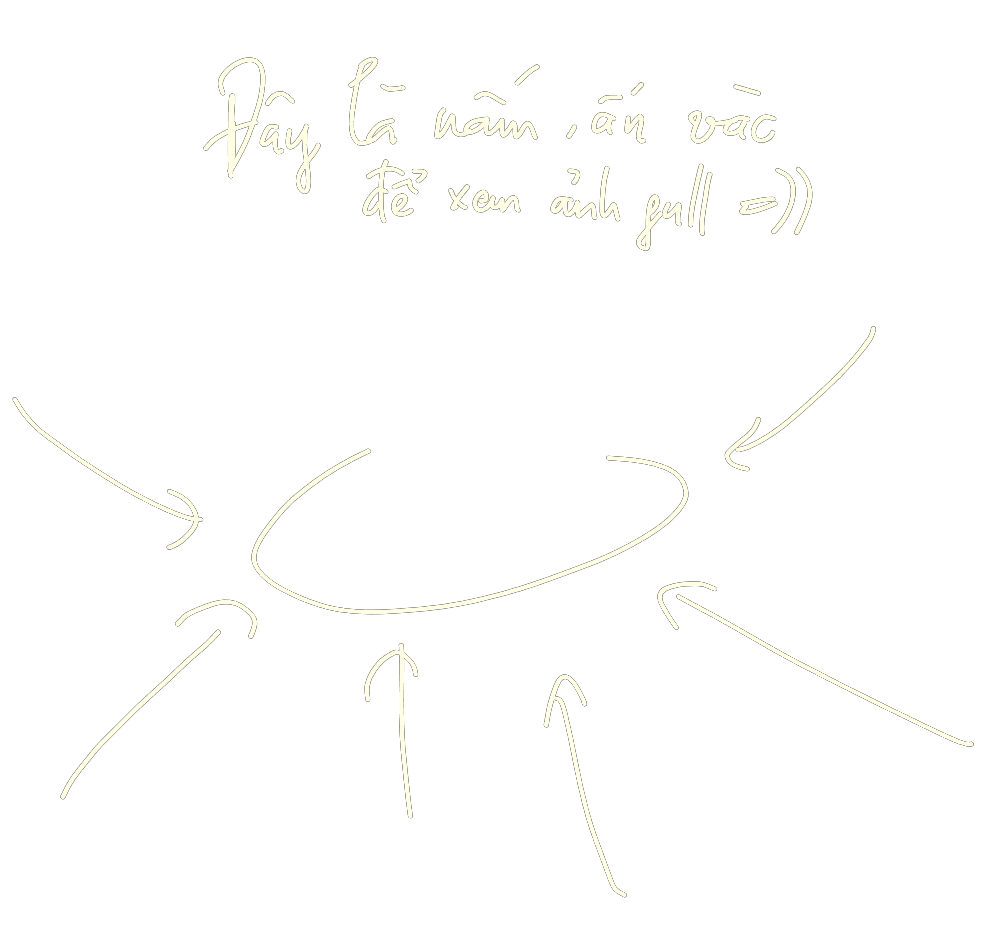 Đây là nấm, ấn vàc
để xem ảnh full =))